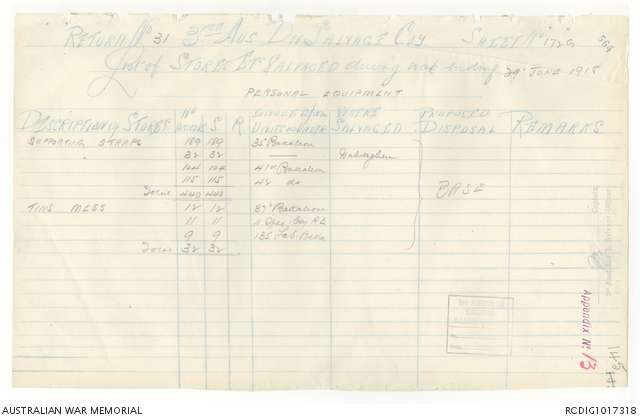 RETURN No 31 3RD AUS DIV SALVAGE COY SHEET No 1726 564
List of STORES ETC SALVAGED during week ending 29th JUNE 1918
PERSONAL EQUIPMENT
DESCRIPTION of STORES No S R. SALVAGED PROPOSED DISPOSAL REMARKS
SUPPORTING STRAPS 189 189 35 Battalion
32 32 ——
104 104 41st Battalion
115 115 42 do
Total 440 440
BASE
TINS MESS 12 12 37th Battalion
11 11
9 9 135 Lab.
Total 32 32
Appendix No 13
AUSTRALIAN WAR MEMORIAL
RCDIG1017318